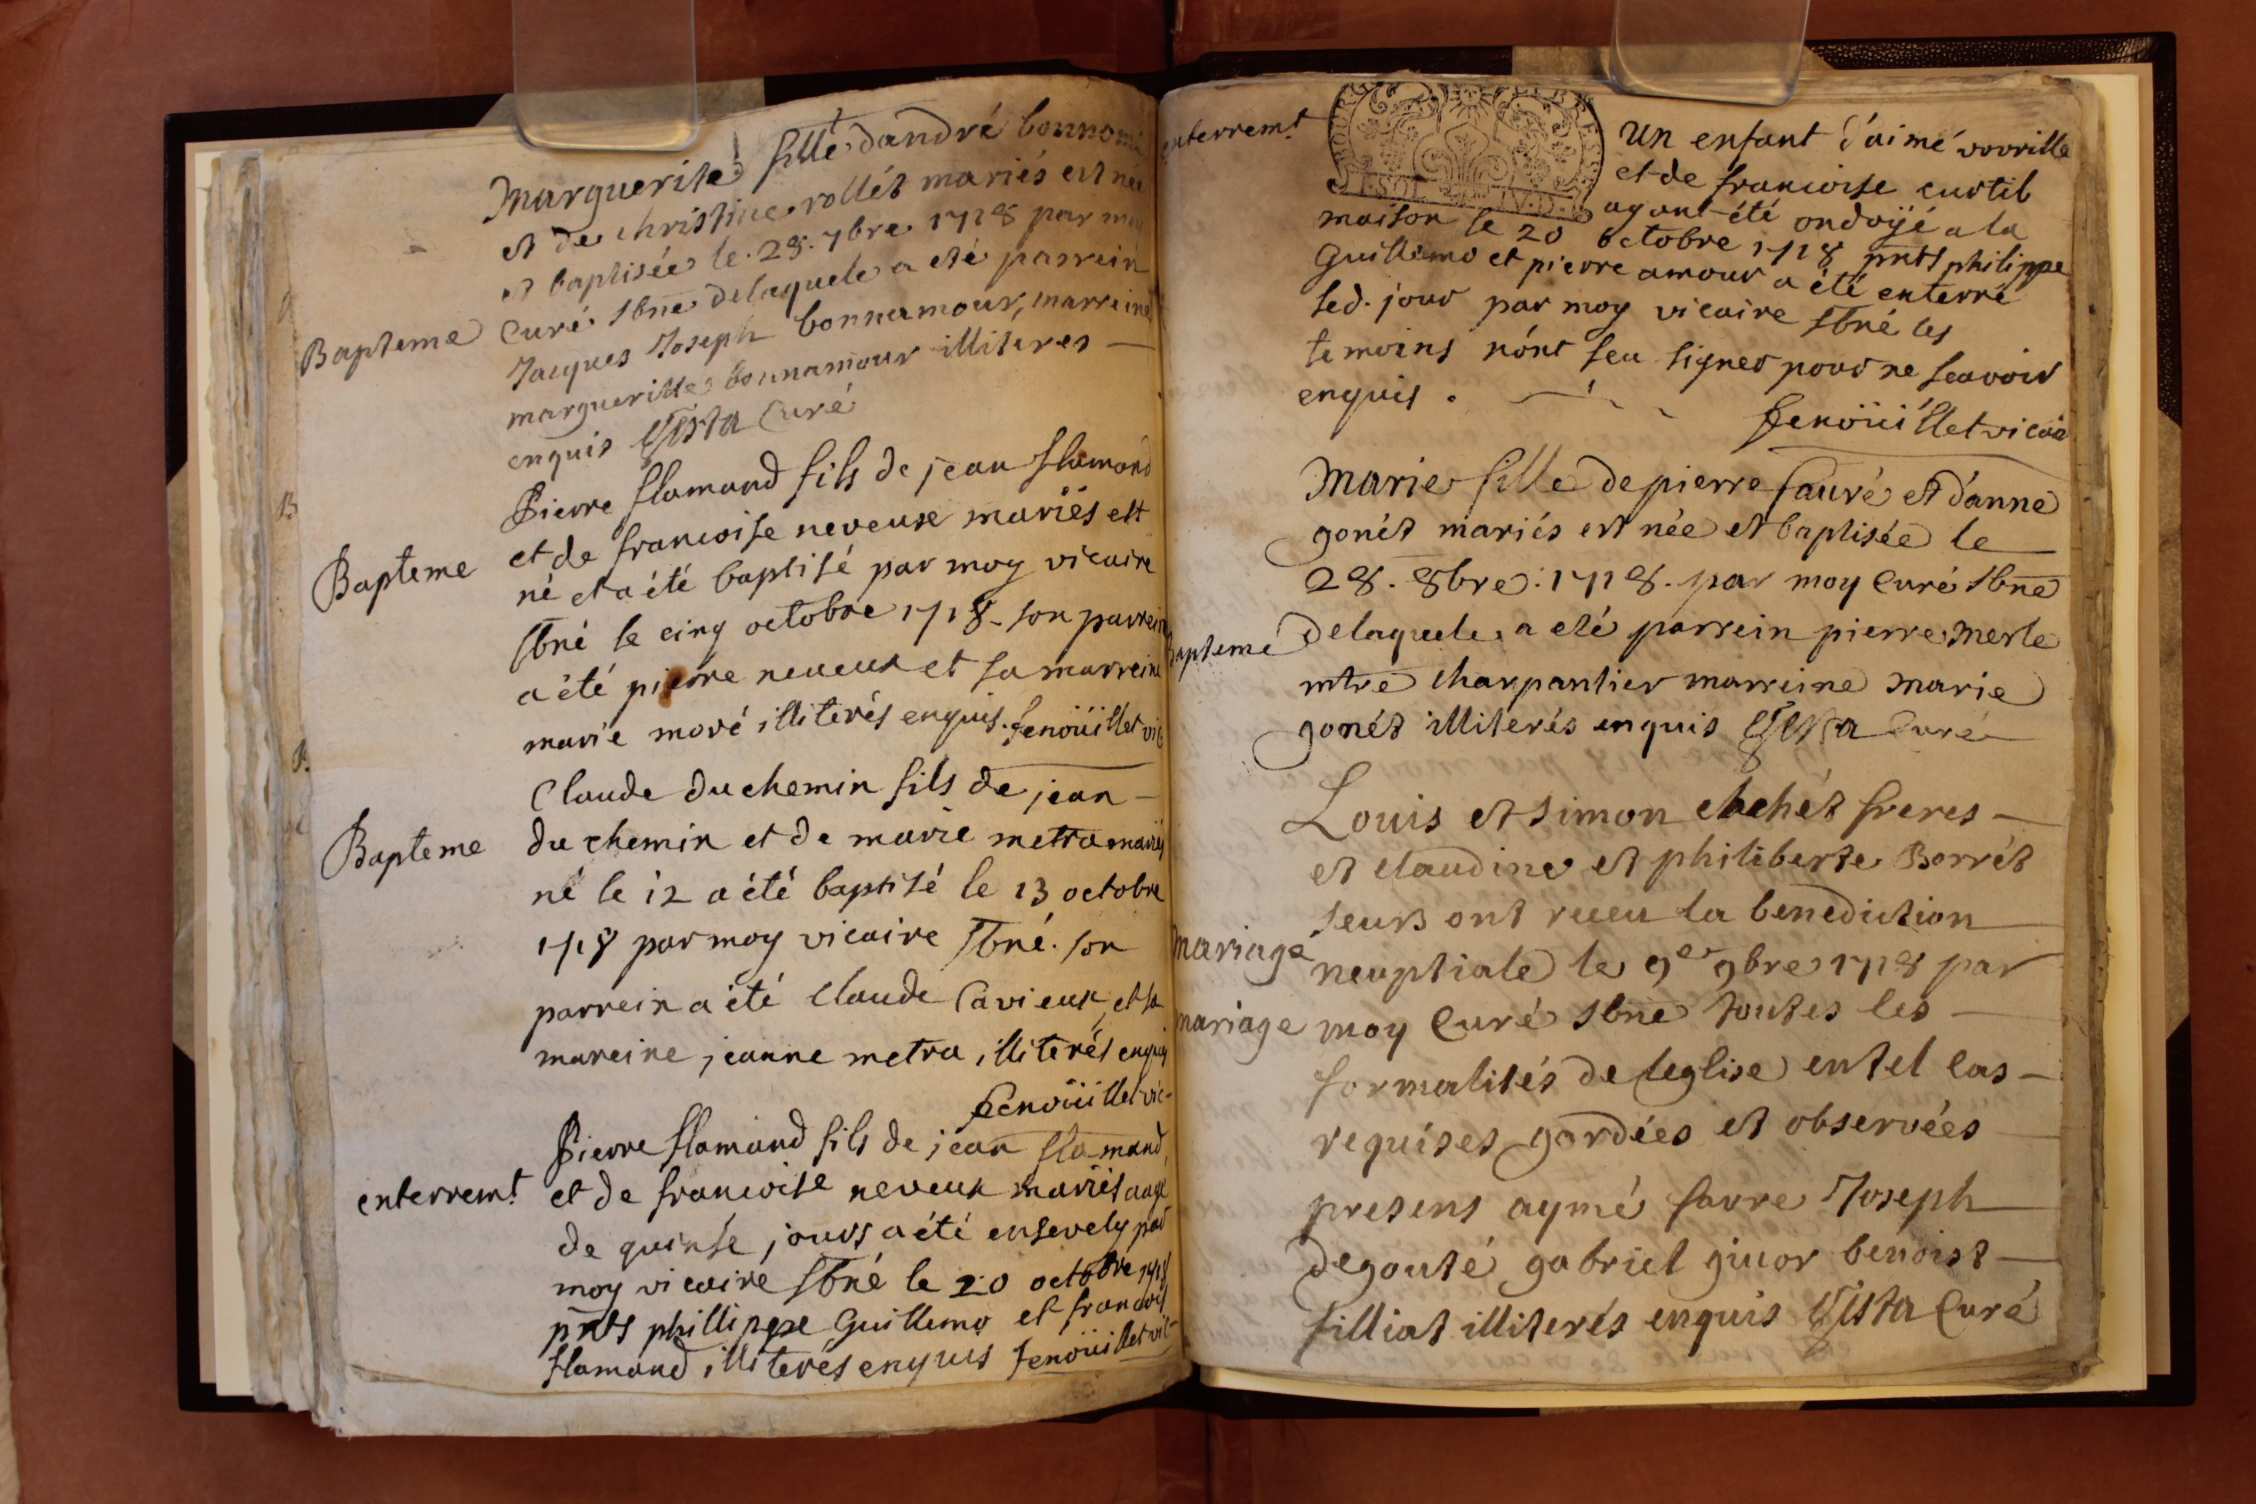 Bapteme
Marguerite fille dandré bonnom
et de christine rollét mariés est née
et baptisée le. 28. 7bre 1718 par moy
Curé sbne delaquele a eté parrein
Jacques Joseph bonnamour, marreine
margueritte bonnamour illiteres —
enquis Curé
Bapteme
Pierre flamand fils de jean flamand
et de francoise neveuse mariés est
né et a été baptisé par moy vicaire
sbné le cinq octobre 1718 - son parrein
a été pierre neveux et sa marreine
marie moré illiterés enquis. fenoüillet vic
Bapteme
Claude duchemin fils de jean —
du chemin et de marie metra mariés
né le 12 a été baptisé le 13 octobre
1718 par moy vicaire sbné. son
parrein a été Claude Cavieux, et sa
mareine jeanne metra illiterés enquis
fenoüillet vic-
enterremt
Pierre flamand fils de jean flamand,
et de francoise neveux mariés aagé
de quinse jours a été ensevely par
moy vicaire sbné le 20 octobre 1718
pnts phillippe Guillemo et francois
flamand illiterés enquis fenoüillet vic-
enterremt
un enfant d'aimé vovrille
et de francoise curtil
ayant été ondoÿé a la
maison le 20 octobre 1718 pnts philippe
Guillemo et pierre amour a été enterré
led. jour par moy vicaire sbné les
temoins n'ónt seu signer pour ne scavoir
enquis.
fenoüillet vicai
Bapteme
Marie fille de pierre fauré et d'anne
gonét mariés est née et baptisée le
28. 8bre. 1718. par moy Curé sbne
delaquele a eté parrein pierre merle
mtre charpantier marreine marie
gonét illiterés enquis Curé
Mariage
mariage
Louis et simon chehét freres —
et claudine et philiberte Borrét
seurs ont receu la benediction
neuptiale le 9e 9bre 1718 par
moy Curé sbne toutes les —
formalités de leglise en tel cas —
requises gardées et observées
presens aymé favre Joseph
degouté gabriel givor benoist —
filliat illiterés enquis Curé